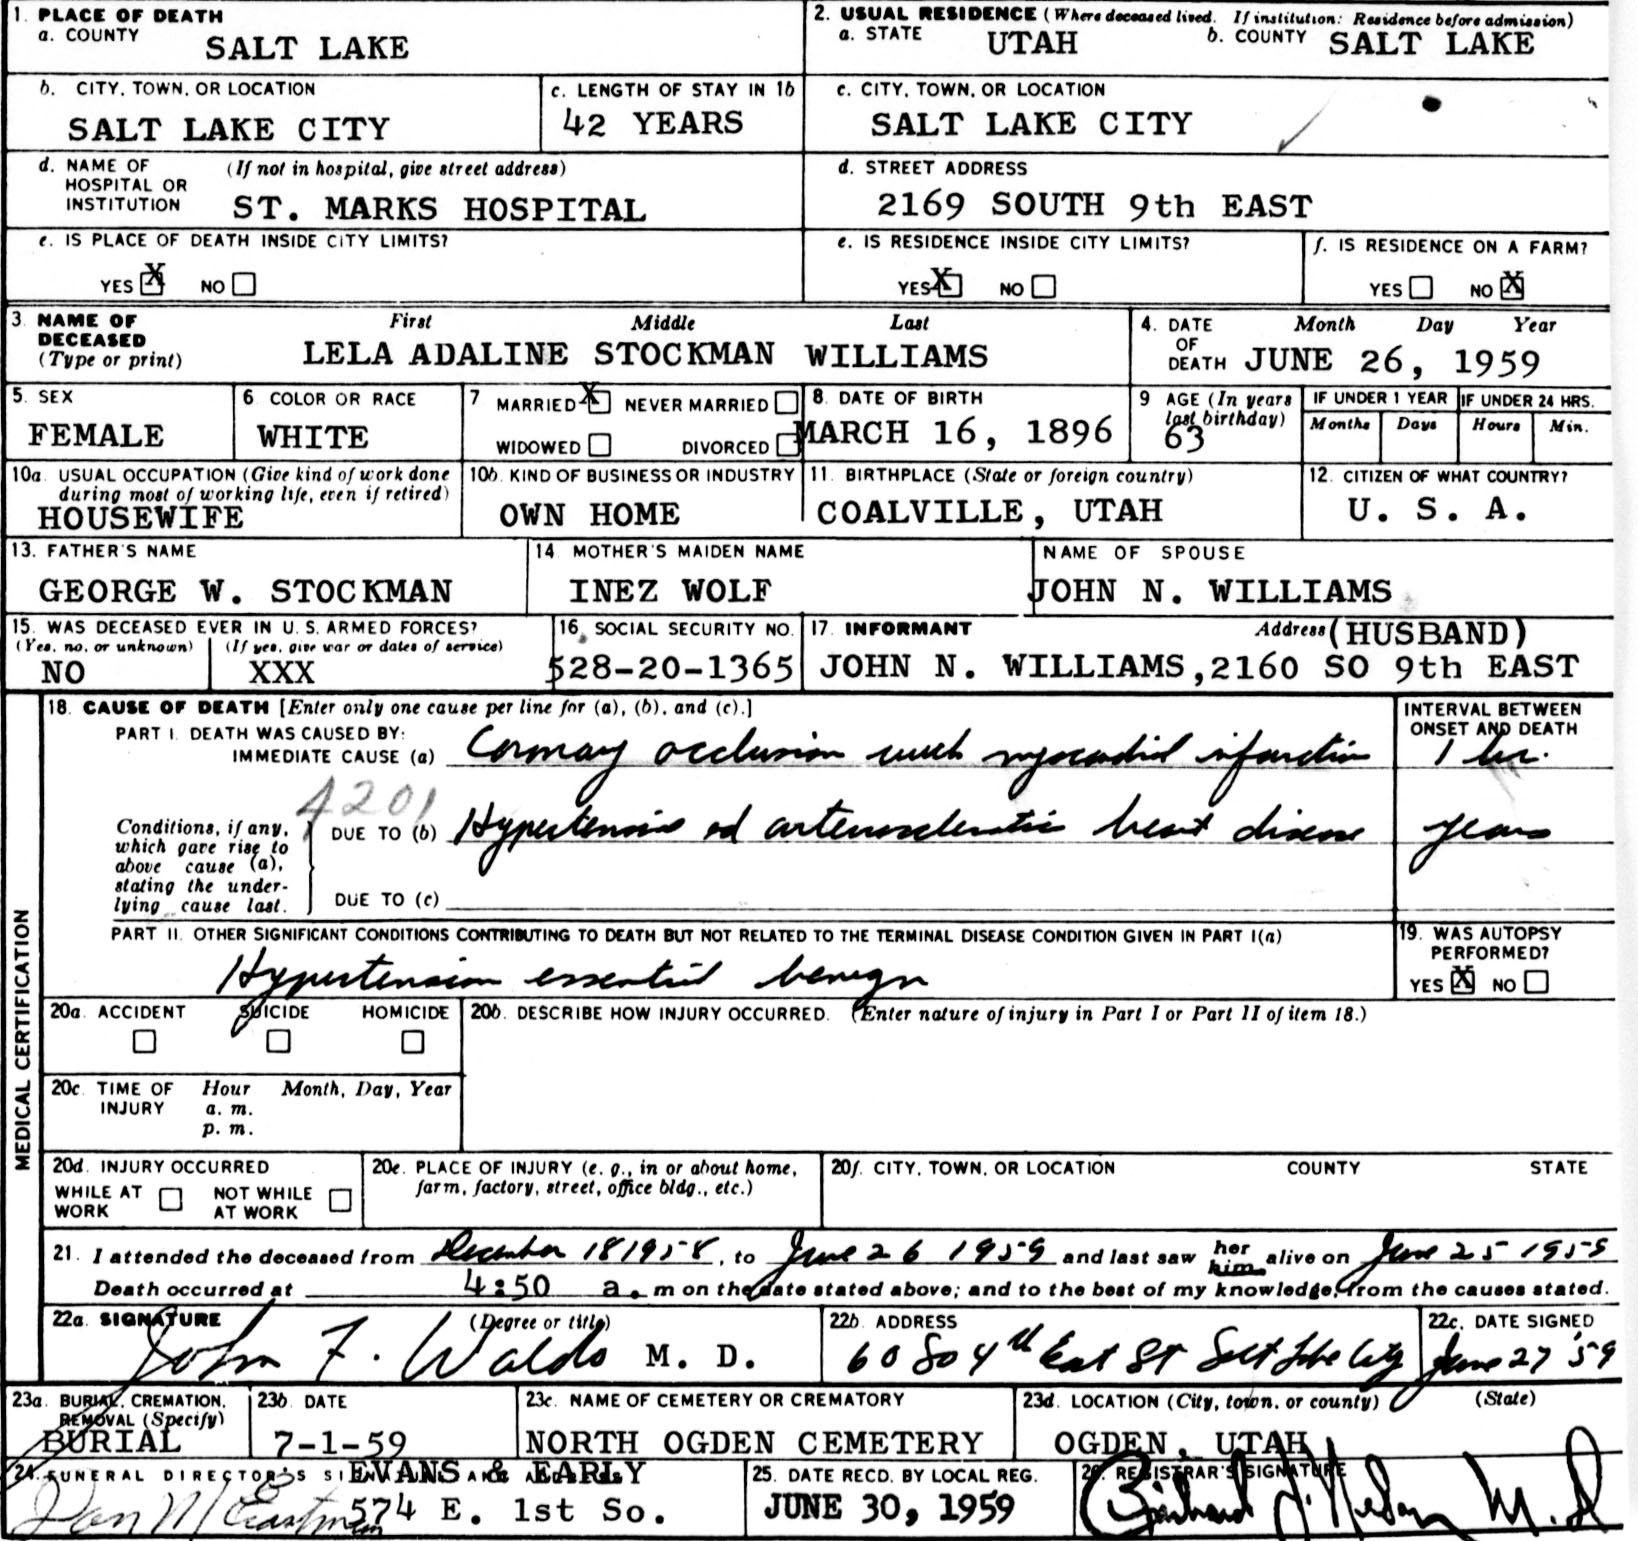 1. PLACE OF DEATH
a. COUNTY SALT LAKE
2. USUAL RESIDENCE (Where deceased lived. If institution: Residence before admission)
a. STATE UTAH b. COUNTY SALT LAKE
b. CITY, TOWN, OR LOCATION SALT LAKE CITY
c. LENGTH OF STAY IN 1b 42 YEARS
c. CITY, TOWN, OR LOCATION SALT LAKE CITY
d. NAME OF HOSPITAL OR INSTITUTION (If not in hospital, give street address) ST. MARKS HOSPITAL
d. STREET ADDRESS 2169 SOUTH 9th EAST
e. IS PLACE OF DEATH INSIDE CITY LIMITS?
YES X NO
e. IS RESIDENCE INSIDE CITY LIMITS?
YES X NO
f. IS RESIDENCE ON A FARM?
YES NO X
3. NAME OF DECEASED (Type or print) First Middle Last
LELA ADALINE STOCKMAN WILLIAMS
4. DATE OF DEATH Month Day Year
JUNE 26, 1959
5. SEX FEMALE
6 COLOR OR RACE WHITE
7 MARRIED X NEVER MARRIED
WIDOWED DIVORCED
8. DATE OF BIRTH MARCH 16, 1896
9 AGE (In years last birthday) 63
IF UNDER 1 YEAR Months Days
IF UNDER 24 HRS. Hours Min.
10a. USUAL OCCUPATION (Give kind of work done during most of working life, even if retired) HOUSEWIFE
10b. KIND OF BUSINESS OR INDUSTRY OWN HOME
11. BIRTHPLACE (State or foreign country) COALVILLE, UTAH
12. CITIZEN OF WHAT COUNTRY? U. S. A.
13. FATHER'S NAME GEORGE W. STOCKMAN
14. MOTHER'S MAIDEN NAME INEZ WOLF
NAME OF SPOUSE JOHN N. WILLIAMS
15. WAS DECEASED EVER IN U. S. ARMED FORCES?
(Yes, no, or unknown) NO (If yes, give war or dates of service) XXX
16. SOCIAL SECURITY NO. 528-20-1365
17. INFORMANT Address (HUSBAND)
JOHN N. WILLIAMS, 2160 SO 9th EAST
MEDICAL CERTIFICATION
18. CAUSE OF DEATH [Enter only one cause per line for (a), (b), and (c).]
INTERVAL BETWEEN ONSET AND DEATH
PART I. DEATH WAS CAUSED BY:
IMMEDIATE CAUSE (a) Coronary occlusion with myocardial infarction 1 hr.
4201
Conditions, if any, which gave rise to above cause (a), stating the underlying cause last.
DUE TO (b) Hypertensive and arteriosclerotic heart disease years
DUE TO (c)
PART II. OTHER SIGNIFICANT CONDITIONS CONTRIBUTING TO DEATH BUT NOT RELATED TO THE TERMINAL DISEASE CONDITION GIVEN IN PART I(a)
Hypertension essential benign
19. WAS AUTOPSY PERFORMED?
YES X NO
20a. ACCIDENT SUICIDE HOMICIDE
20b. DESCRIBE HOW INJURY OCCURRED. (Enter nature of injury in Part I or Part II of item 18.)
20c. TIME OF INJURY Hour Month, Day, Year
a. m.
p. m.
20d. INJURY OCCURRED
WHILE AT WORK NOT WHILE AT WORK
20e. PLACE OF INJURY (e. g., in or about home, farm, factory, street, office bldg., etc.)
20f. CITY, TOWN, OR LOCATION COUNTY STATE
21. I attended the deceased from December 18 1958, to June 26 1959 and last saw her him alive on June 25 1959
Death occurred at 4:50 a. m on the date stated above; and to the best of my knowledge, from the causes stated.
22a. SIGNATURE (Degree or title)
John F. Waldo M. D.
22b. ADDRESS 60 So 4th East St Salt Lake City
22c. DATE SIGNED June 27 '59
23a. BURIAL, CREMATION, REMOVAL (Specify) BURIAL
23b. DATE 7-1-59
23c. NAME OF CEMETERY OR CREMATORY NORTH OGDEN CEMETERY
23d. LOCATION (City, town, or county) (State)
OGDEN, UTAH
24. FUNERAL DIRECTOR'S SIGNATURE AND ADDRESS
EVANS & EARLY
574 E. 1st So.
25. DATE RECD. BY LOCAL REG. JUNE 30, 1959
26. REGISTRAR'S SIGNATURE
M.D.